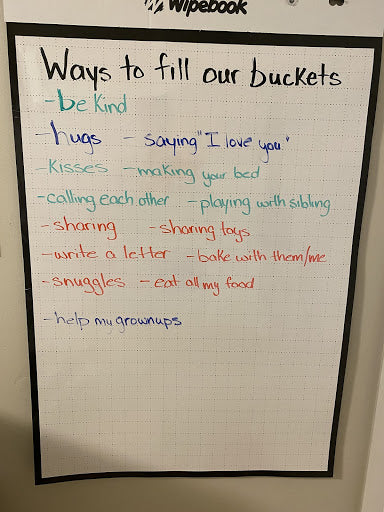 Wipebook
Ways to fill our buckets
- be Kind
- hugs - saying "I love you."
- Kisses - making your bed
- calling each other - playing with sibling
- sharing - sharing toys
- write a letter - bake with them/me
- snuggles - eat all my food
- help my grownups